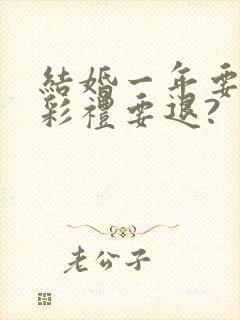 結婚一年要
彩禮要退?
老公子